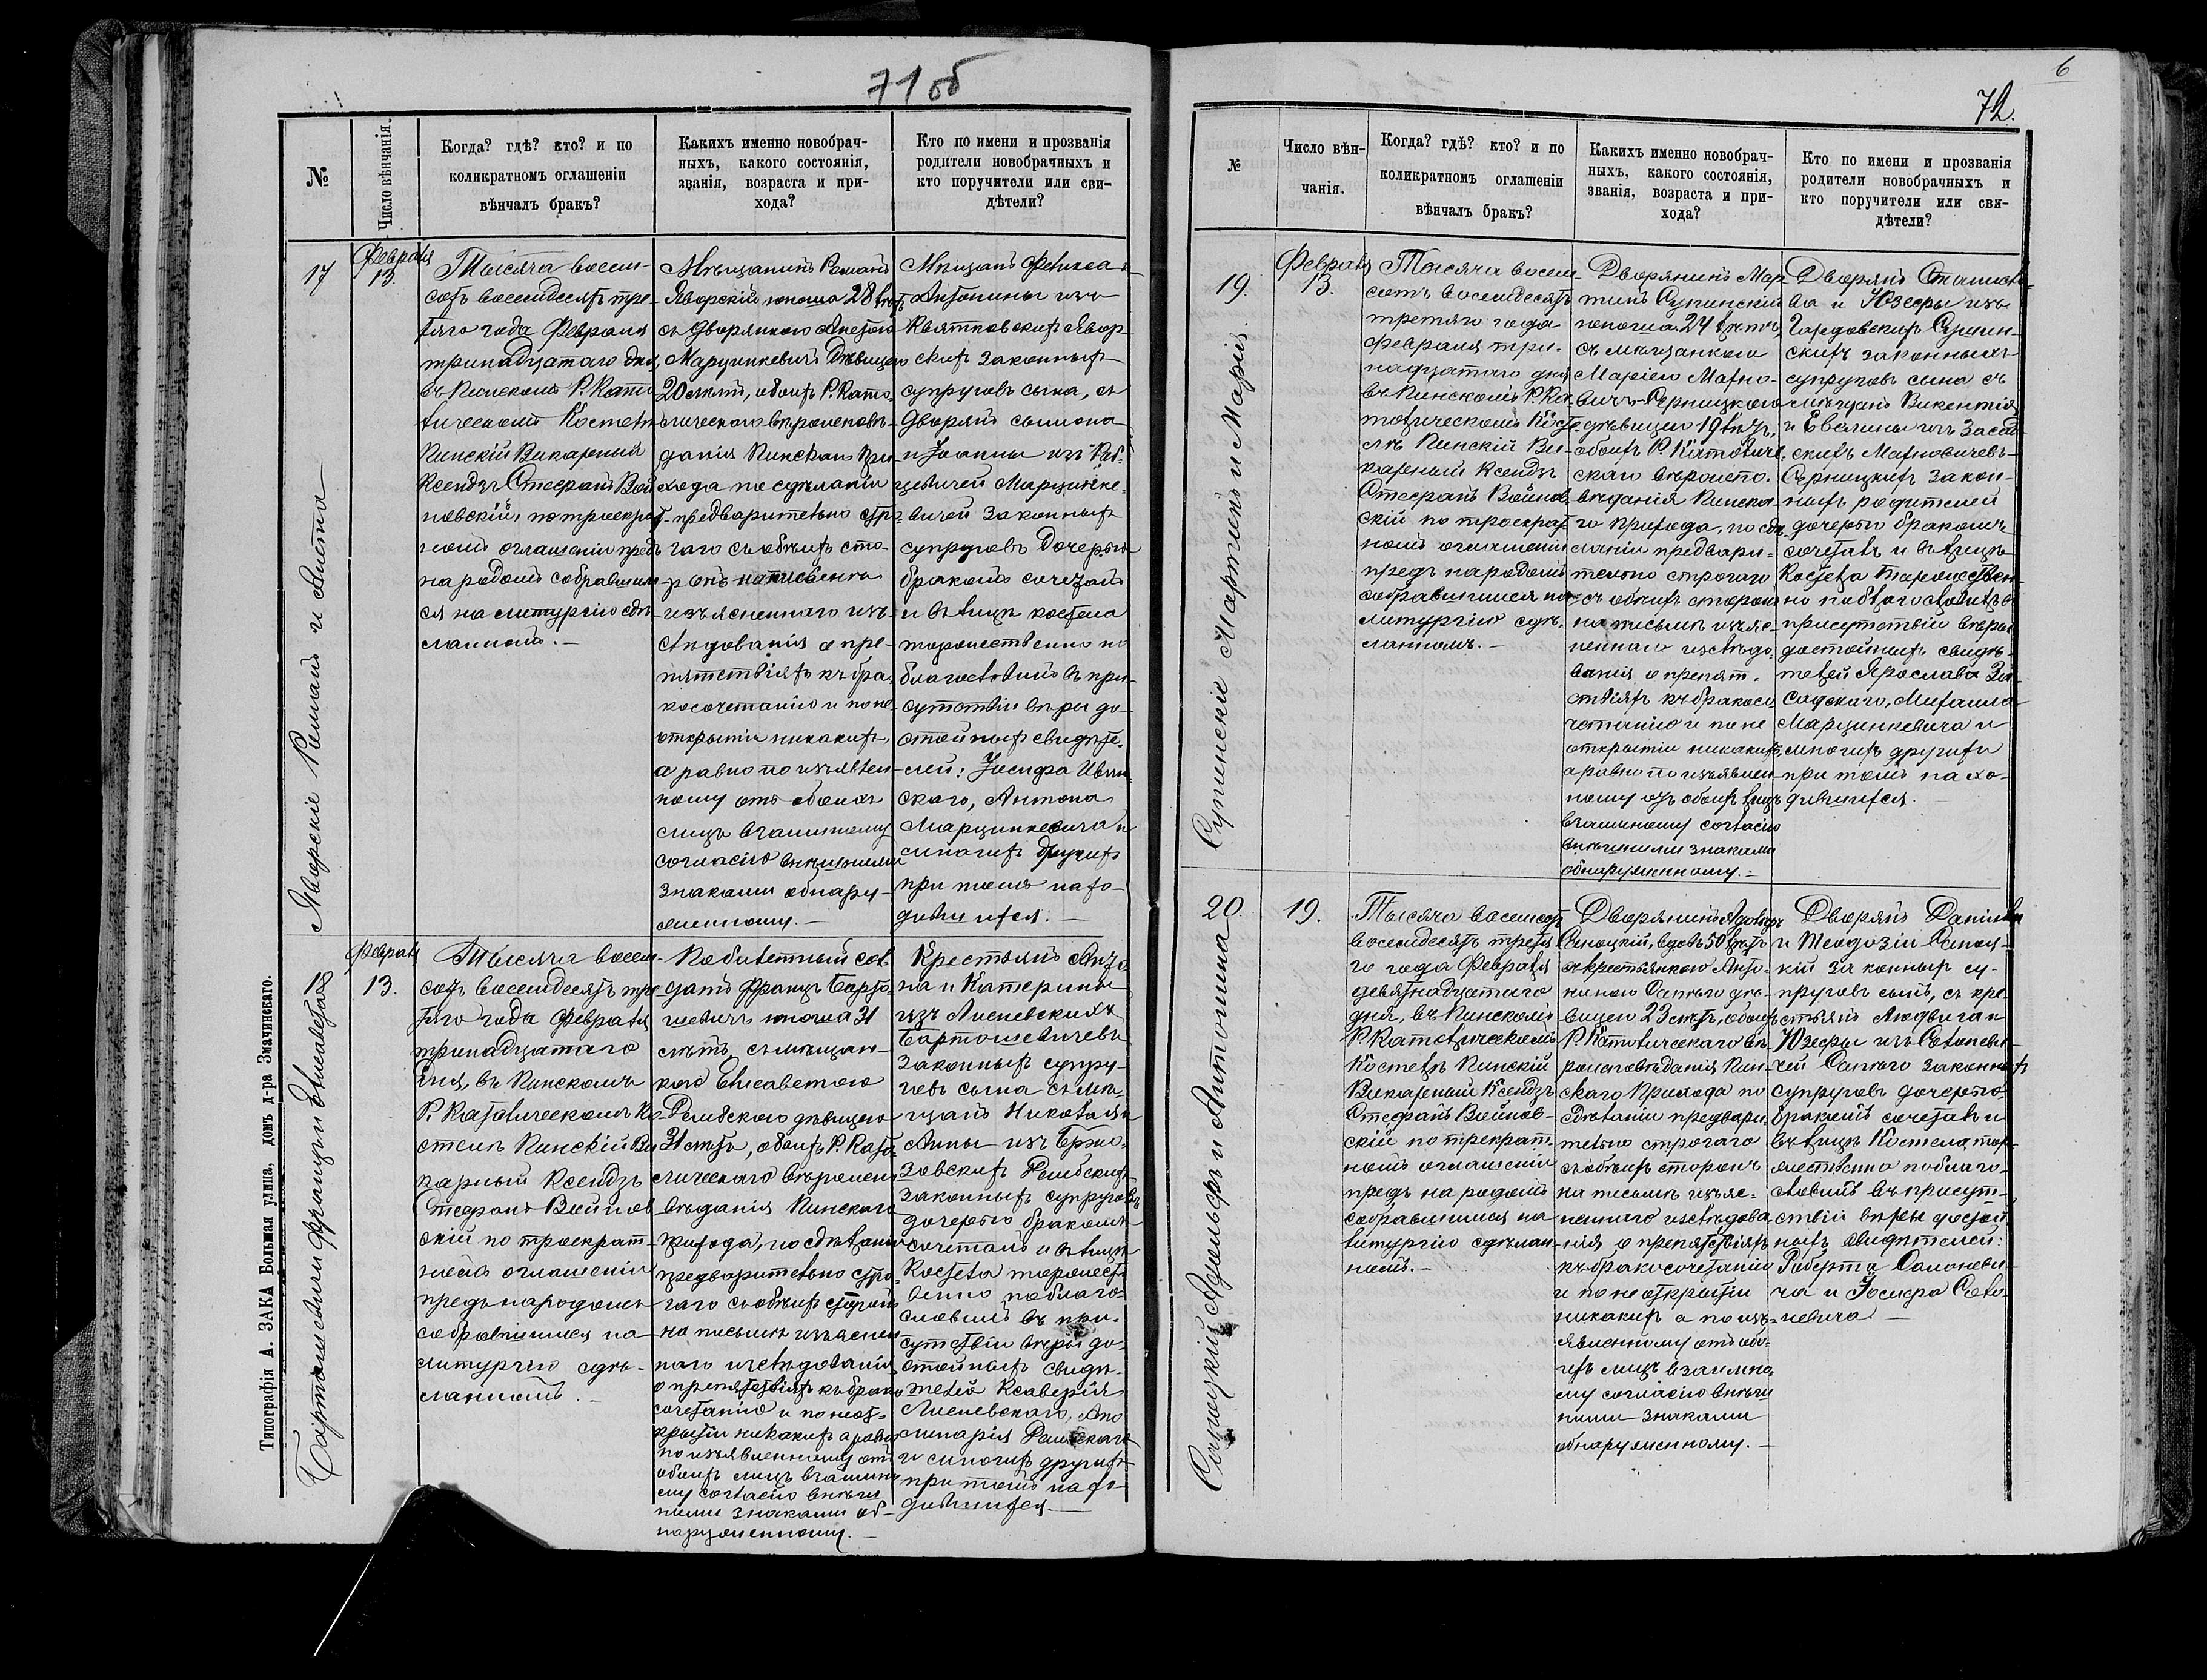 71 об
№
Число вѣнчанія.
Когда? гдѣ? кто? и по
коликратномъ оглашеніи
вѣнчалъ бракъ?
Какихъ именно новобрач-
ныхъ, какого состоянія,
званія, возраста и при-
хода?
Кто по имени и прозванія
родители новобрачныхъ и
кто поручители или сви-
дѣтели?
17
Яворскіе Романъ и Анета
Февраля
13.
Тысяча восем-
сотъ восемдесятъ тре-
тяго года Февраля
тринадцатаго дня,
въ Пинскомъ Р. Като
лическомъ Костелѣ
Пинскій Викарный
Ксендзъ Стефанъ Вой
новскій, по троекрат-
номъ оглашеніи предъ
народомъ собравшим-
ся на литургію сдѣ-
ланномъ.-
Мѣщанинъ Романъ
Яворскій юноша 28 лѣтъ
съ Дворянкою Анетою
Марцинкевичъ Дѣвицею
20 лѣтъ, обоихъ Р. Като-
лическаго вѣроисповѣ-
данія Пинскаго При
хода по сдѣланіи
предварительно стро-
гаго съ обѣихъ сто-
ронъ на письмѣ
изъясненнаго из-
слѣдованія о пре-
пятствіяхъ къ бра-
косочетанію и по не
открытіи никакихъ,
а равно по изъявлен-
ному отъ обоихъ
лицъ взаимному
согласію внѣшними
знаками обнару-
женному.-
Мѣщанъ Феликса и
Антонины изъ
Квятковскихъ Явор-
скихъ законныхъ
супруговъ сына, съ
Дворянъ Сымона
и Іоанны изъ
цевичей Марцинке-
вичей законныхъ
супруговъ дочерью
бракомъ сочеталъ
и въ лицѣ костела
торжественно по
благословилъ въ при-
сутствіи вѣры до-
стойныхъ свидѣте-
лей: Іосифа
скаго, Антона
Марцинкевича и
многихъ другихъ
при томъ нахо-
дившихся.-
Бартошевичи Францъ и Елисавета
Февраля
13.
Тысяча восем-
сотъ восемдесятъ тре-
тяго года Февраля
тринадцатаго
дня, въ Пинскомъ
Р. Католическомъ Ко-
стелѣ Пинскій Ви
карный Ксендзъ
Стефанъ Войнов-
скій по троекрат-
номъ оглашеніи
предъ народомъ
собравшимся на
литургію сдѣ-
ланномъ.-
Побилетный сол-
датъ Францъ Барто-
шевичъ юноша 31
лѣтъ съ мѣщан-
кою Елисаветою
Рембскою дѣвицею
31 лѣтъ, обоихъ Р. Като-
лическаго вѣроиспо
вѣданія Пинскаго
Прихода, по сдѣланіи
предварительно стро-
гаго съ обѣихъ сторонъ
на письмѣ изъяснен
наго изслѣдованія
о препятствіяхъ къ брако
сочетанію и по неот-
крытіи никакихъ а равно
по изъявленному отъ
обоихъ лицъ взаимно
му согласію внѣш
ними знаками об-
наруженному.-
Крестьянъ Анто
на и Катерины
изъ Лисневскихъ
Бартошевичевъ
законныхъ супру-
говъ сына съ мѣ-
щанъ Николая и
Анны изъ Бржо-
зовскихъ Рембскихъ
законныхъ супруговъ
дочерью бракомъ
сочеталъ и въ лицѣ
Костела торжест
венно поблаго-
словилъ въ при-
сутствіи вѣры до-
стойныхъ свидѣ-
телей Ксаверія
Лисневскаго, Апо
линарія Рембскаго
и многихъ другихъ
при томъ нахо-
дившихся.-
Типографія А. ЗАКА Большая улица, домъ д-ра Значинскаго.
6
72.
№
Число вѣн-
чанія.
Когда? гдѣ? кто? и по
коликратномъ оглашеніи
вѣнчалъ бракъ?
Какихъ именно новобрач-
ныхъ, какого состоянія,
званія, возраста и при-
хода?
Кто по имени и прозванія
родители новобрачныхъ и
кто поручители или сви-
дѣтели?
19.
Супинскіе Мартинъ и Марія.
Февраля
13.
Тысяча восем
сотъ восемдесятъ
третяго года
Февраля три-
надцатаго дня
въ Пинскомъ Р. Ка
толическомъ Косте
лѣ Пинскій Ви-
карный Ксендзъ
Стефанъ Войнов
скій по троекрат
номъ оглашеніи
предъ народомъ
собравшимся на
литургію сдѣ-
ланномъ.-
Дворянинъ Мар
тинъ Супинскій
юноша 24 лѣтъ,
съ мѣщанкою
Маріею Махно-
вичъ-Серницкою
дѣвицею 19 лѣтъ,
обоихъ Р. Католиче
скаго вѣроиспо-
вѣданія Пинска-
го прихода, по сдѣ-
ланіи предвари-
тельно строгаго
съ обѣихъ сторонъ
на письмѣ изъяс-
неннаго изслѣдо-
ванія о препят-
ствіяхъ къ бракосо
четанію и по не
открытіи никакихъ,
а равно по изъявлен-
ному отъ обоихъ лицъ
взаимному согласію
внѣшними знаками
обнаруженному.-
Дворянъ Станисла
ва и Юзефы изъ
Супин-
скихъ законныхъ
супруговъ сына съ
мѣщанъ Викентія
и Евелины изъ Засад-
скихъ Махновичевъ-
Серницкихъ закон-
ныхъ родителей
дочерью бракомъ
сочеталъ и въ лицѣ
Костела торжествен-
но поблагословилъ въ
присутствіи вѣры
достойныхъ свидѣ-
телей Ярослава За-
садскаго, Михаила
Марцинкевича и
многихъ другихъ
при томъ нахо-
дившихся.-
20
Саноцкій Адольфъ и Антонина
19.
Тысяча восемсотъ
восемдесятъ третя
го года Февраля
девятнадцатаго
дня, въ Пинскомъ
Р. Католическомъ
Костелѣ Пинскій
Викарный Ксендзъ
Стефанъ Войнов-
скій по трекрат-
номъ оглашеніи
предъ народомъ
собравшимся на
литургію сдѣлан-
номъ.-
Дворянинъ Адольфъ
Саноцкій, вдовъ 50 лѣтъ
съ крестьянкою Анто-
ниною дѣ-
вицею 23 лѣтъ, обоихъ
Р. Католическаго вѣ
роисповѣданія Пин-
скаго Прихода по
сдѣланіи предвари-
тельно строгаго
съ обѣихъ сторонъ
на письмѣ изъяс-
неннаго изслѣдова-
нія о препятствіяхъ
къ бракосочетанію
и по не открытіи
никакихъ а по изъ-
явленному отъ обо-
ихъ лицъ взаимно
му согласію внѣш
ними знаками
обнаруженному.-
Дворянъ Даніила
и Теодозіи Саноц-
кихъ законныхъ су-
пруговъ сынъ, съ кре-
стьянъ Людвига и
Юзефы изъ
чей законныхъ
супруговъ дочерью
бракомъ сочеталъ и
въ лицѣ Костела тор-
жественно поблаго-
словилъ въ присут-
ствіи вѣры достой
ныхъ свидѣтелей:
Роберта Солоневи-
ча и Іосифа
невича-